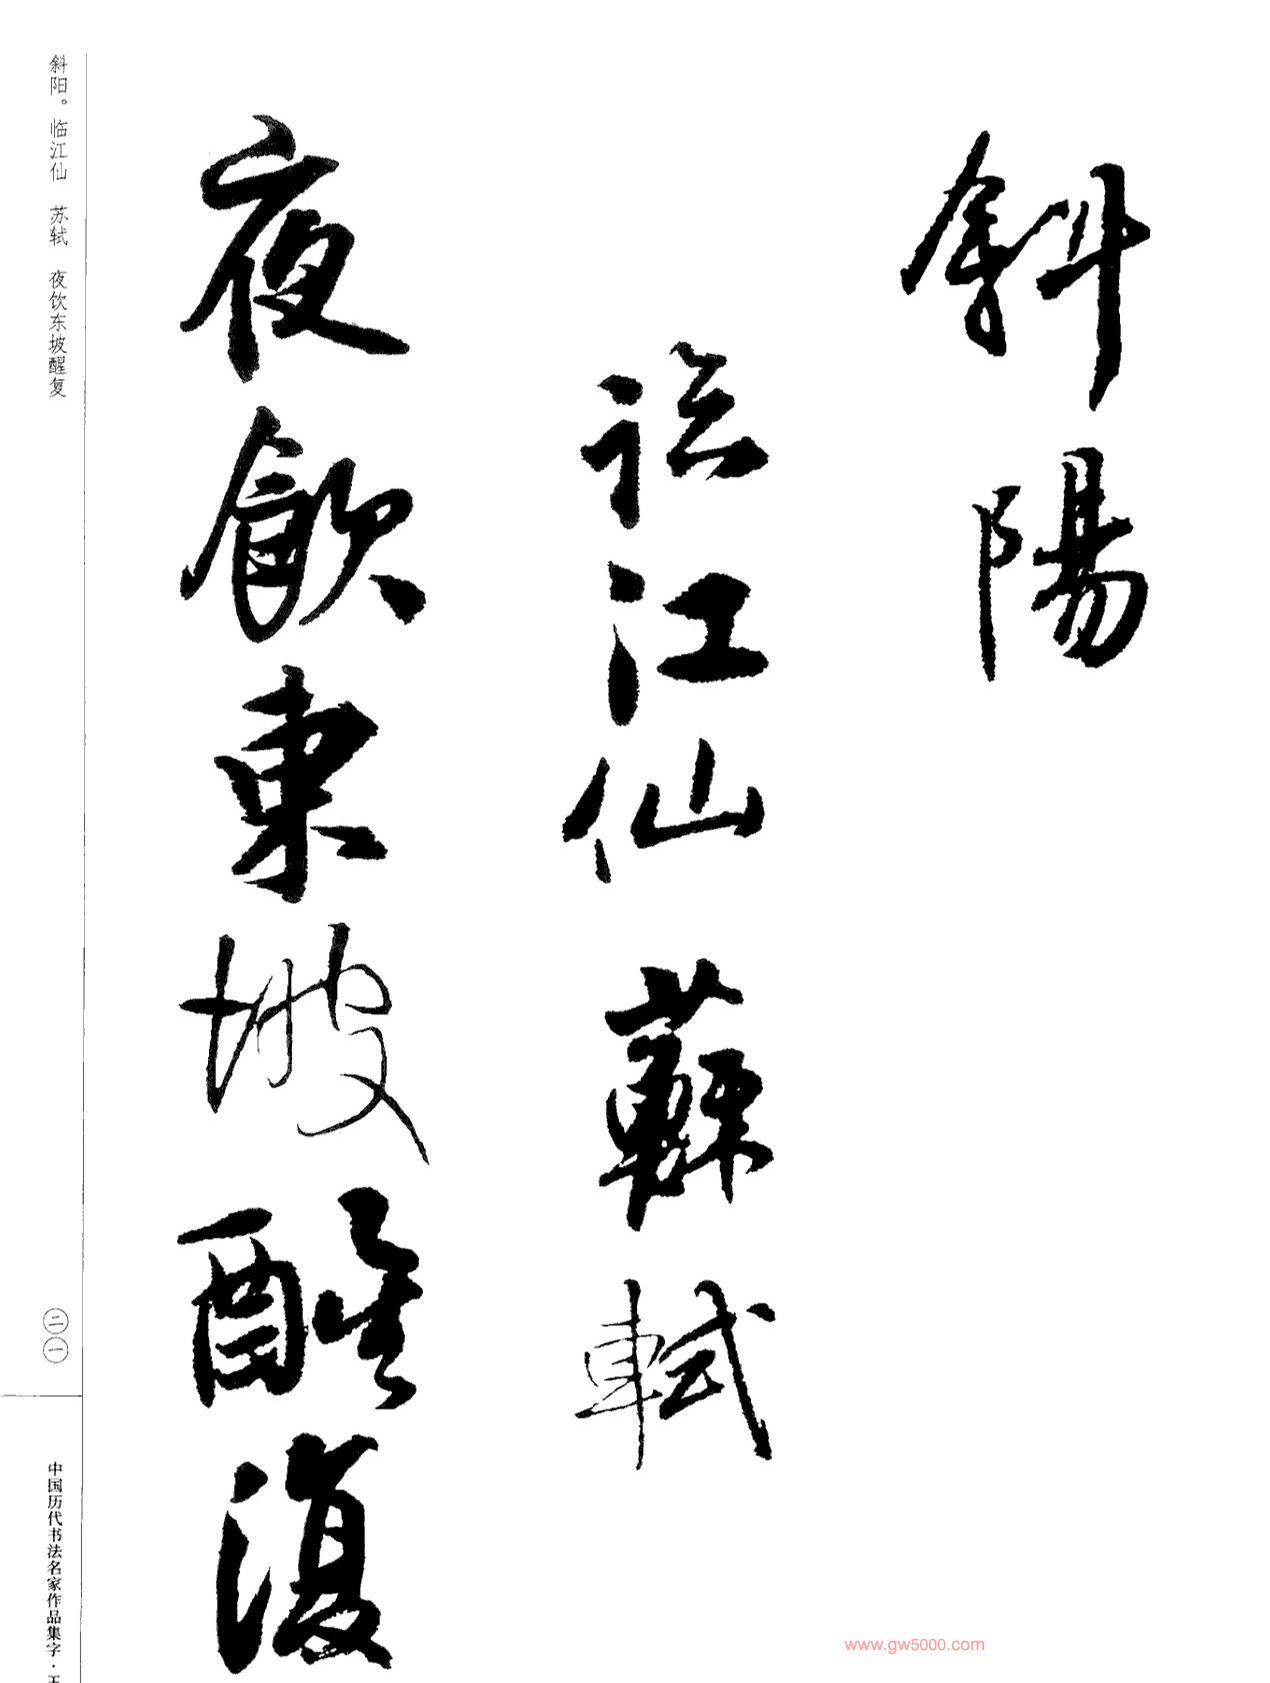 斜陽
臨江仙 蘇軾
夜飲東坡醒復
斜阳。临江仙 苏轼 夜饮东坡醒复
二一
中国历代书法名家作品集字·王
www.gw5000.com